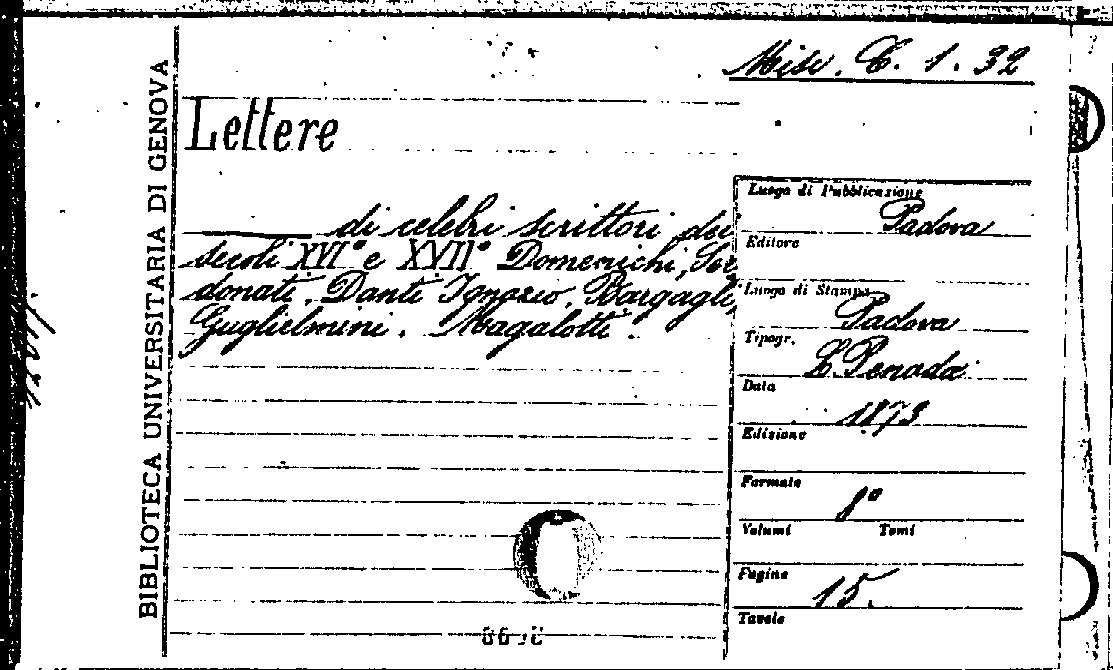 Misc. C. 1. 32
BIBLIOTECA UNIVERSITARIA DI GENOVA
Lettere
di celebri scrittori dei
secoli XVI° e XVII° Domenichi, Ser
donati. Danti Ignazio. Bargagli,
Guglielmini. Magalotti.
Luogo di Pubblicazione
Padova
Editore
Luogo di Stampa
Padova
Tipogr.
L. Penada
Data
1873
Edizione
Formato
8°
Volumi Tomi
Pagine
15.
Tavole